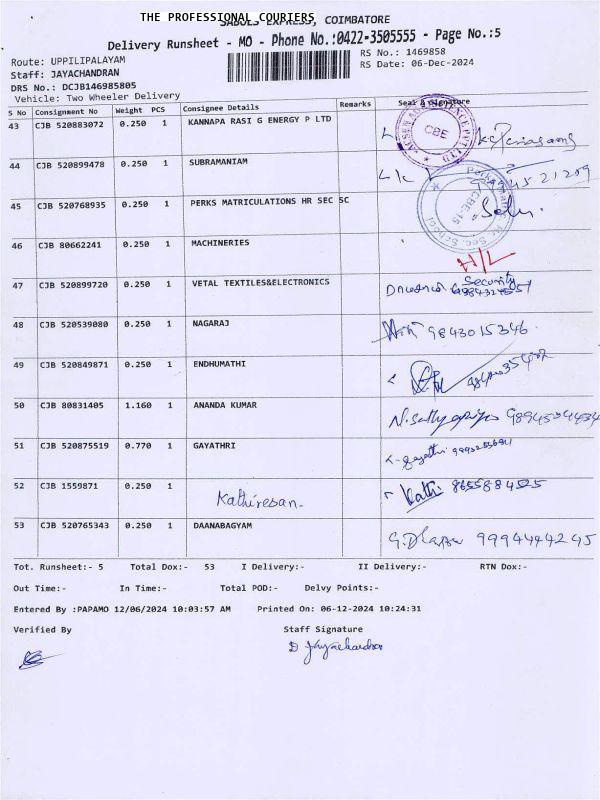 THE PROFESSIONAL COURIERS
SABOLS EXPRESS, COIMBATORE
Delivery Runsheet - MO - Phone No.:0422-3505555 - Page No.:5
Route: UPPILIPALAYAM RS No.: 1469858
Staff: JAYACHANDRAN RS Date: 06-Dec-2024
DRS No.: DCJB146985805
Vehicle: Two Wheeler Delivery
S No Consignment No Weight PCS Consignee Details Remarks Seal & Signature
43 CJB 520883072 0.250 1 KANNAPA RASI G ENERGY P LTD
CBE
44 CJB 520899478 0.250 1 SUBRAMANIAM
45 CJB 520768935 0.250 1 PERKS MATRICULATIONS HR SEC SC
46 CJB 80662241 0.250 1 MACHINERIES
H/L
47 CJB 520899720 0.250 1 VETAL TEXTILES&ELECTRONICS Security
48 CJB 520539080 0.250 1 NAGARAJ 9843015346
49 CJB 520849871 0.250 1 ENDHUMATHI
50 CJB 80831405 1.160 1 ANANDA KUMAR
51 CJB 520875519 0.770 1 GAYATHRI gayathri
52 CJB 1559871 0.250 1 Kathiresan- Kathi 8655884525
53 CJB 520765343 0.250 1 DAANABAGYAM 9994444245
Tot. Runsheet:- 5 Total Dox:- 53 I Delivery:- II Delivery:- RTN Dox:-
Out Time:- In Time:- Total POD:- Delvy Points:-
Entered By :PAPAMO 12/06/2024 10:03:57 AM Printed On: 06-12-2024 10:24:31
Verified By Staff Signature
D Jayachandran